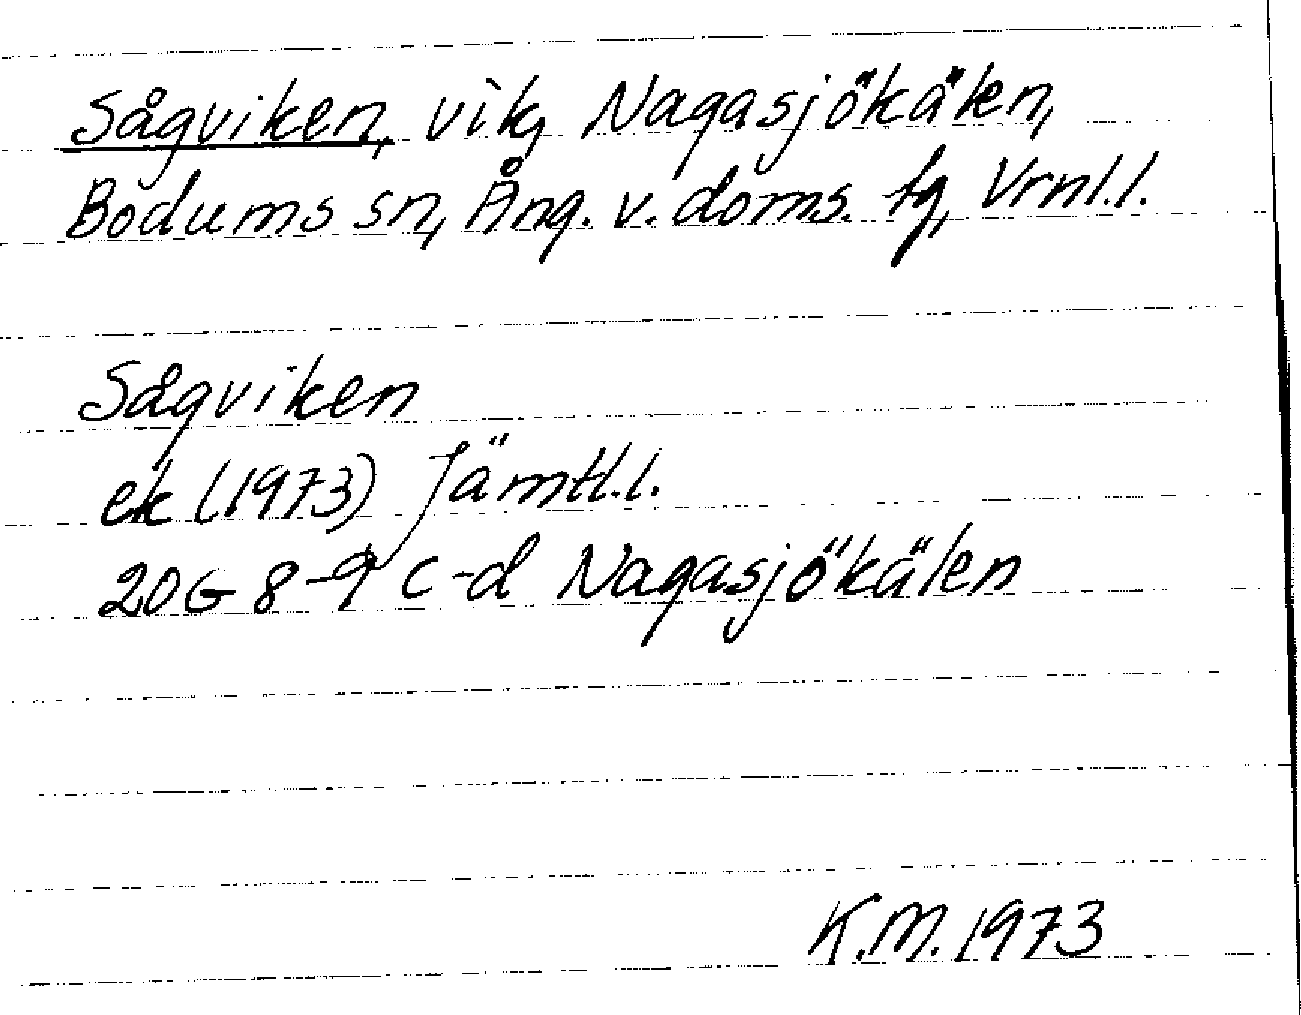 Sågviken, vik, Nagasjökälen,
Bodums sn, Ång. v. doms. tg, Vrnl.l.
Sågviken
ek (1973) Jämtl.l.
20G 8-9 c-d Nagasjökälen
K.M. 1973